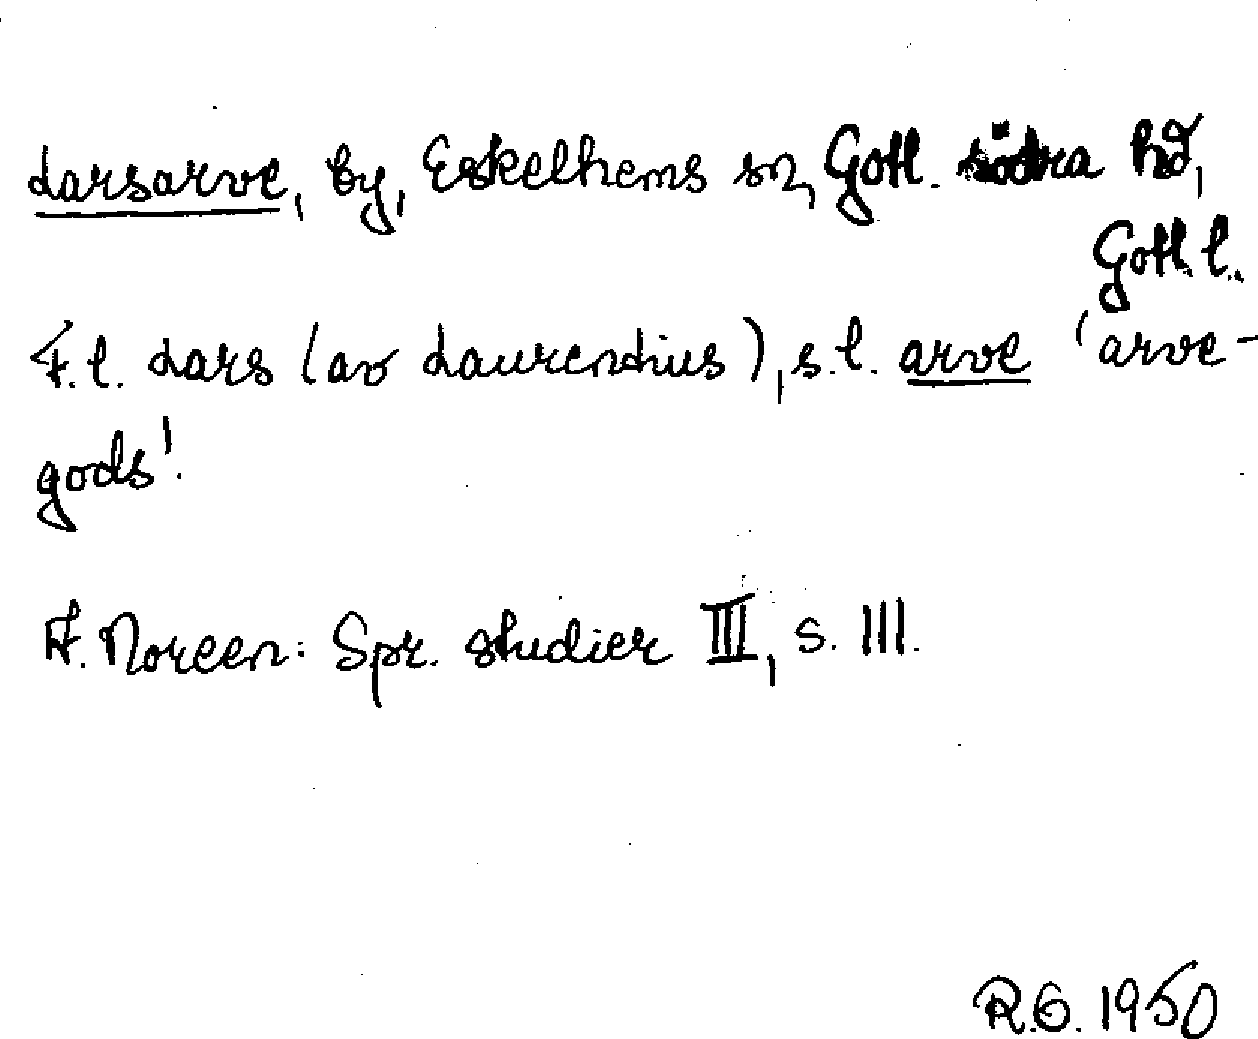 Larsarve, by, Eskelhems sn, Gotl. södra hd,
Gotl. l.
F.l. Lars (av Laurentius), s.l. arve 'arve-
gods'.
A. Noreen: Spr. studier III, s. 111.
R.G. 1950